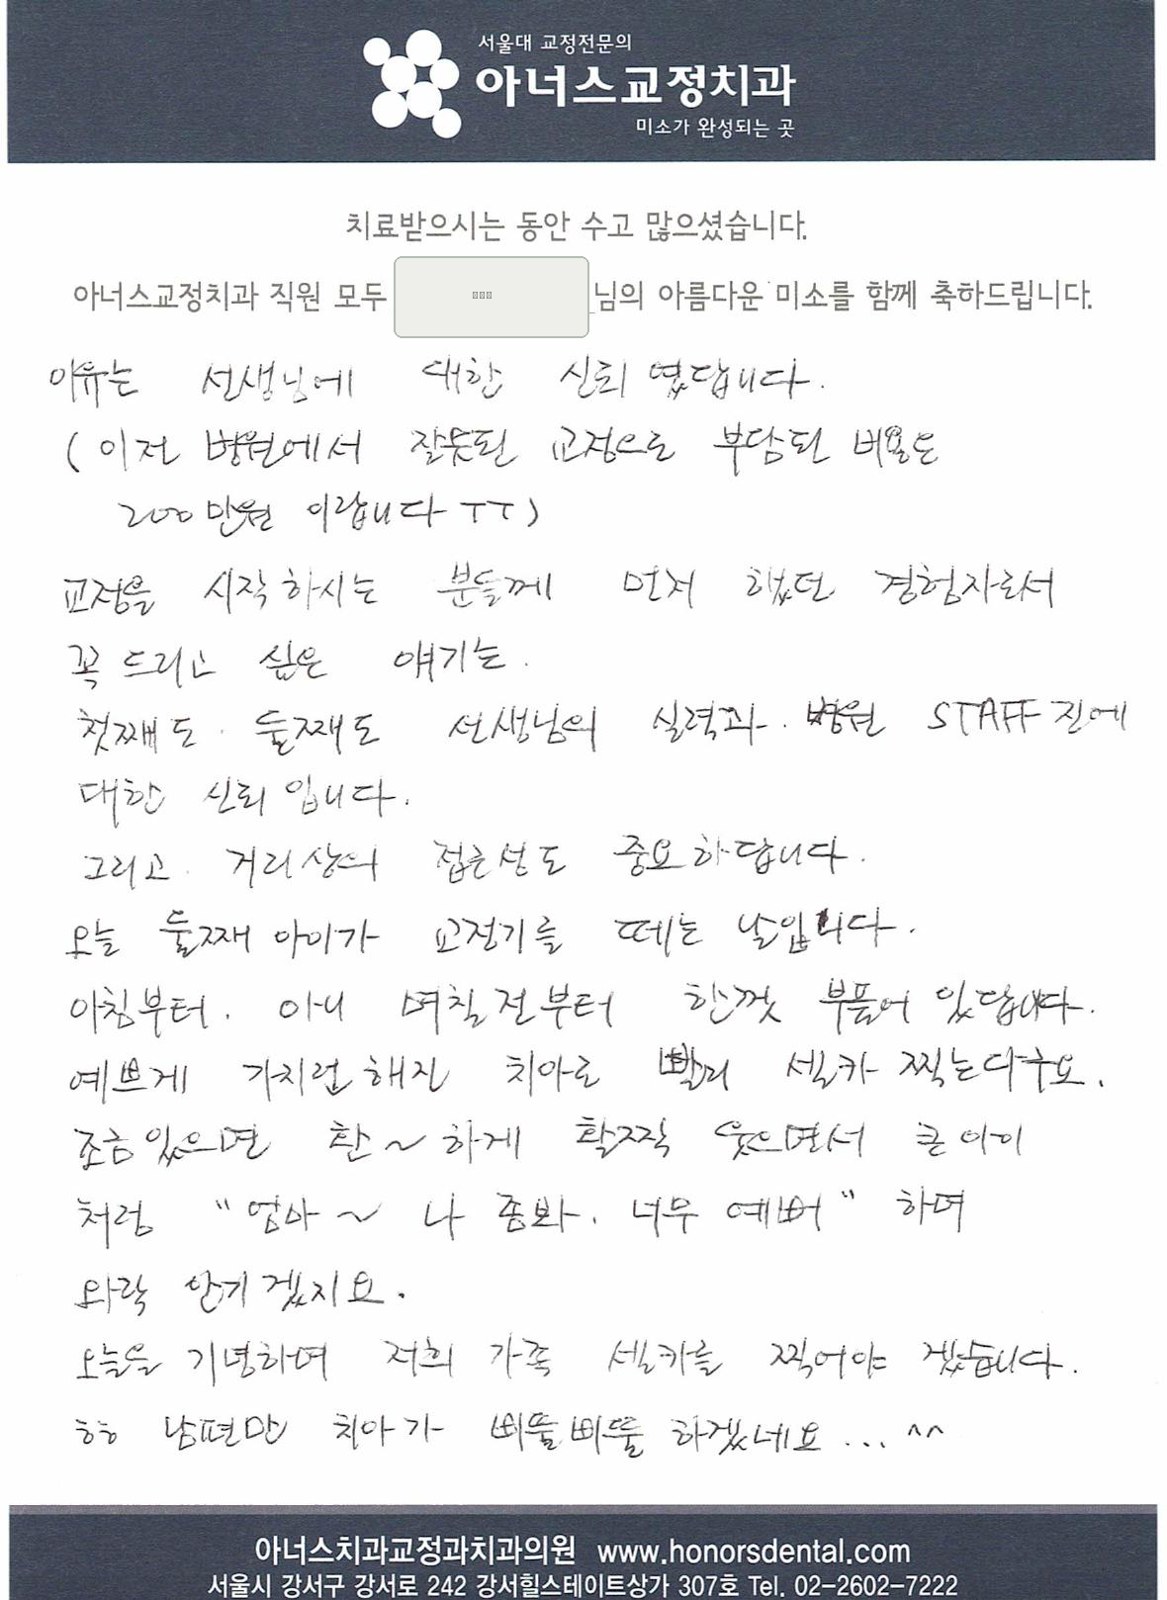 서울대 교정전문의
아너스교정치과
미소가 완성되는 곳
치료받으시는 동안 수고 많으셨습니다.
아너스교정치과 직원 모두 님의 아름다운 미소를 함께 축하드립니다.
이유는 선생님에 대한 신뢰 였답니다.
( 이전 병원에서 잘못된 교정으로 부담된 비용은
200만원 이랍니다 TT )
교정을 시작하시는 분들께 먼저 했던 경험자로서
꼭 드리고 싶은 얘기는.
첫째도 둘째도 선생님의 실력과 병원 STAFF진에
대한 신뢰입니다.
그리고 거리상의 접근성도 중요하답니다.
오늘 둘째 아이가 교정기를 떼는 날입니다.
아침부터. 아니 며칠 전부터 한껏 부풀어 있답니다.
예쁘게 가지런해진 치아로 빨리 셀카 찍는다구요.
조금있으면 환~하게 활짝 웃으면서 큰아이
처럼 "엄마~ 나 좀봐. 너무 예뻐" 하며
와락 안기겠지요.
오늘을 기념하며 저희 가족 셀카를 찍어야 겠습니다.
ㅎㅎ 남편만 치아가 삐뚤삐뚤 하겠네요... ^^
아너스치과교정과치과의원 www.honorsdental.com
서울시 강서구 강서로 242 강서힐스테이트상가 307호 Tel. 02-2602-7222